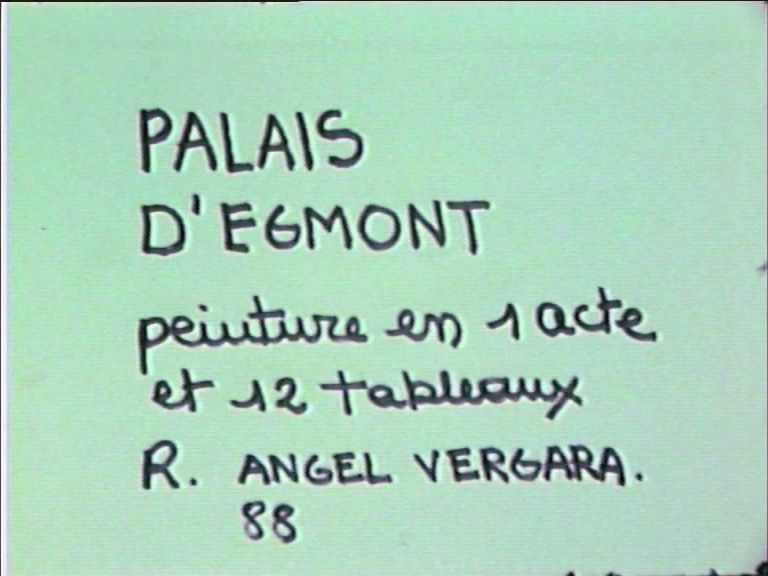 PALAIS
D'EGMONT
peinture en 1 acte
et 12 tableaux
R. ANGEL VERGARA.
88